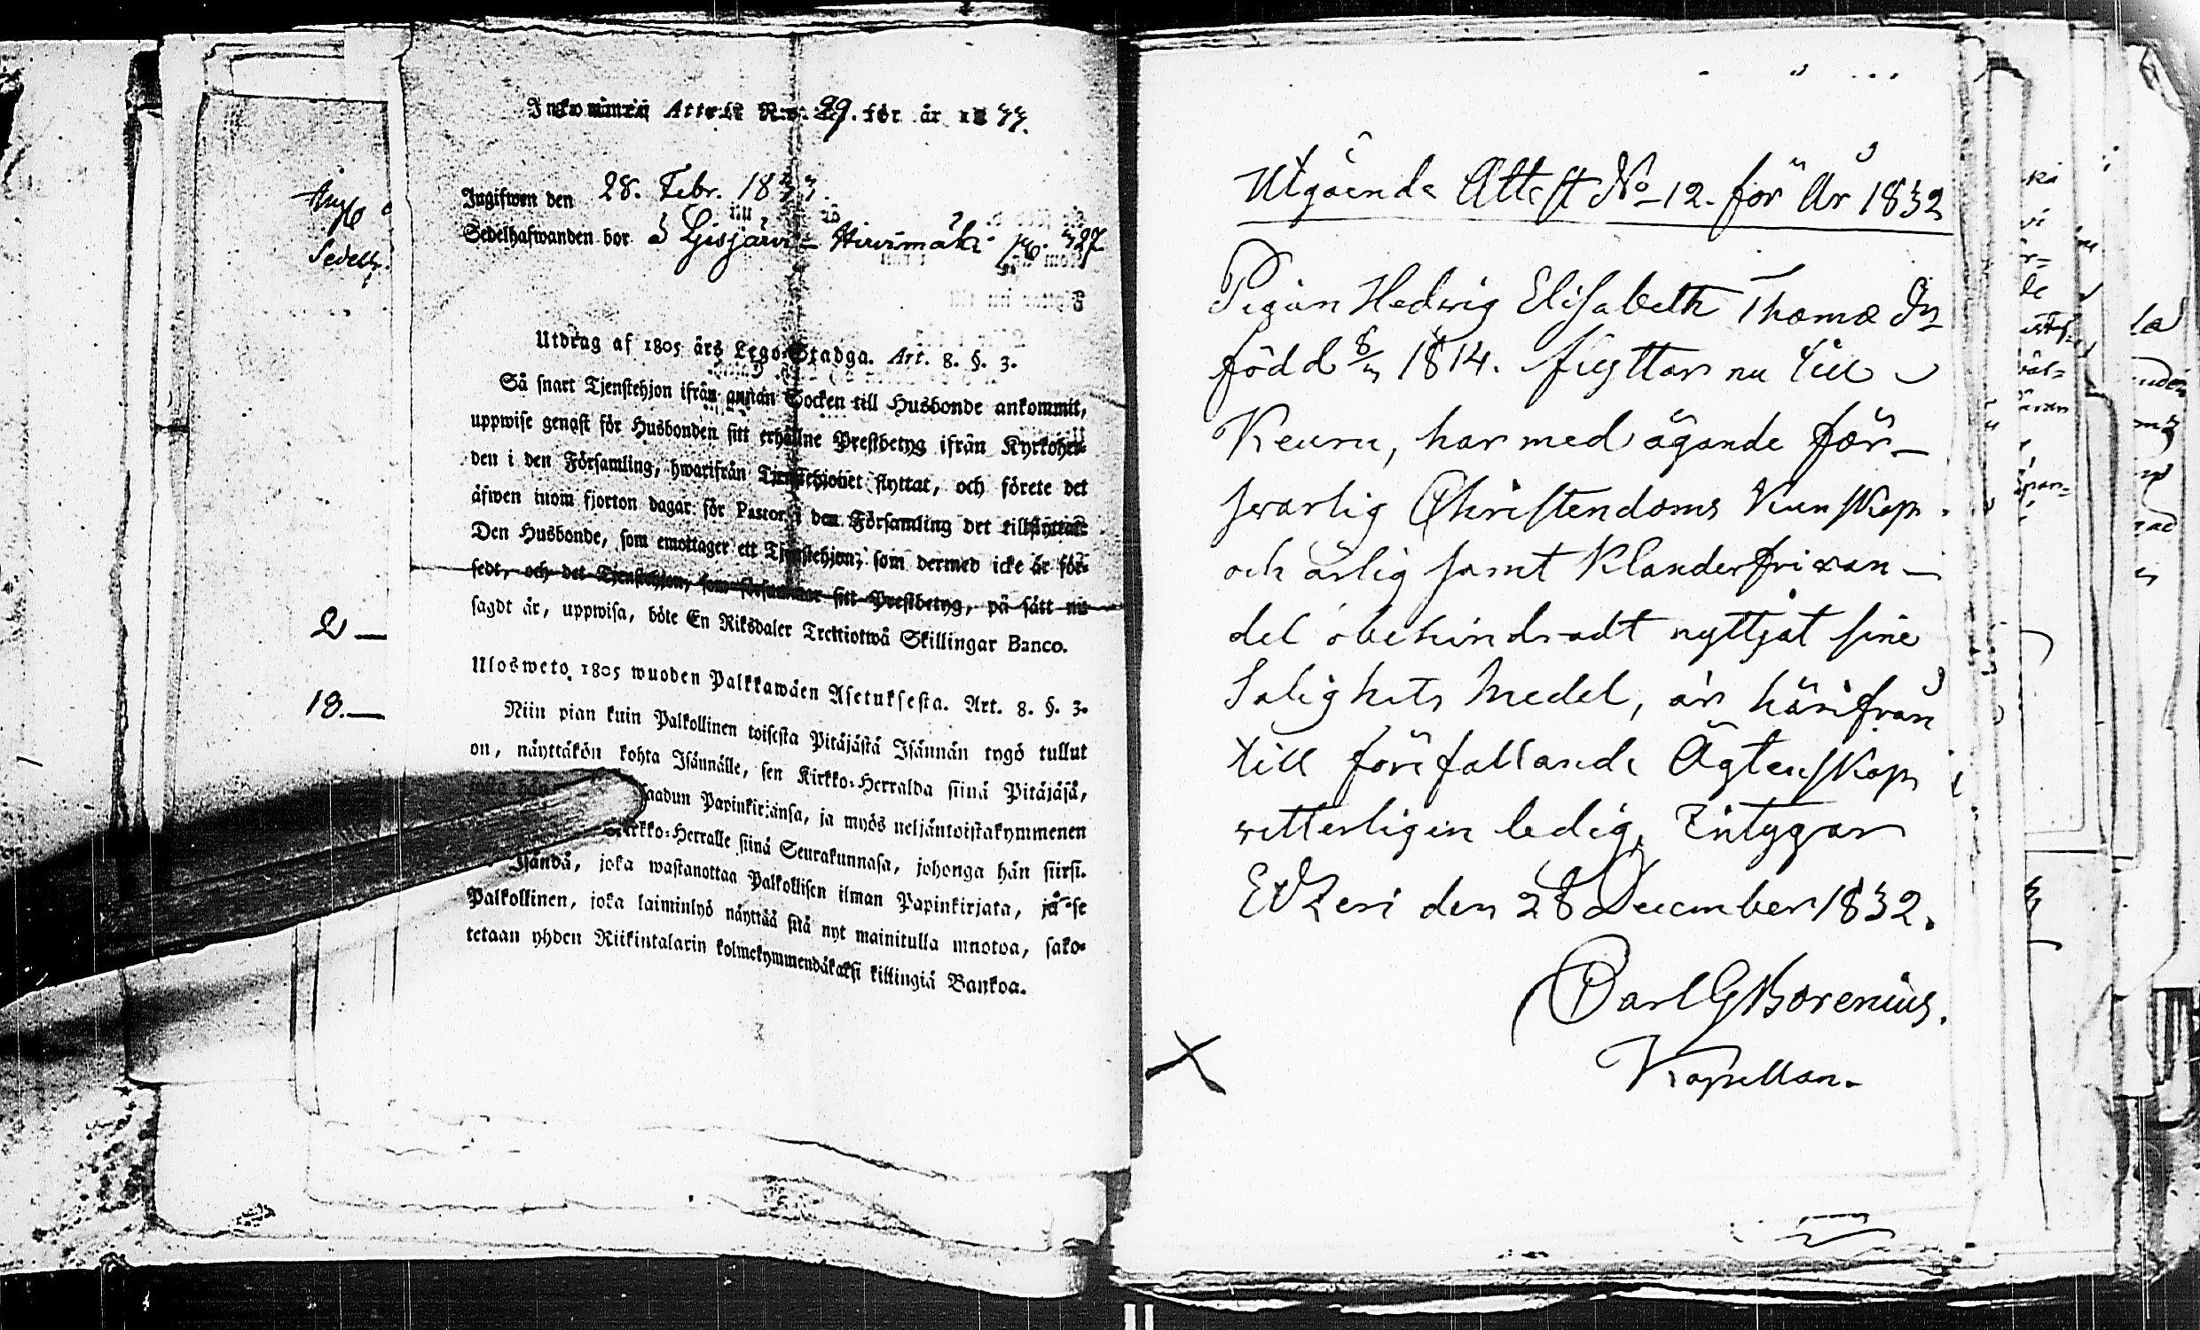 Inkommen Attest N:o 29. för år 1833.
Ingifwen den 28. Febr. 1833.
Sedelhafwanden bor å Lijsjärvi - Hirvimäki p. 327
Utdrag af 1805 års Lego-Stadga. Art. 8. §. 3.
Så snart Tjenstehjon ifrån annan Socken till Husbonde ankommit,
uppwise genast för Husbonden sitt erhållne Prestbetyg ifrån Kyrkoher-
den i den Församling, hwarifrån Tjenstehjonet flyttat, och förete det
äfwen inom fjorton dagar för Pastor i den Församling det tillflyttat.
Den Husbonde, som emottager ett Tjenstehjon, som dermed icke är för-
sedt, och det Tjenstehjon, som försummar sitt Prestbetyg, på sätt nu
sagdt är, uppwisa, böte En Riksdaler Trettiotwå Skillingar Banco.
Ulosweto 1805 wuoden Palkkawäen Asetuksesta. Art. 8. §. 3.
Niin pian kuin Palkollinen toisesta Pitäjästä Isännän tygö tullut
on, näyttäkön kohta Isännälle, sen Kirkko-Herralda siinä Pitäjäsä,
saadun Papinkirjansa, ja myös neljäntoistakymmenen
Kirkko-Herralle siinä Seurakunnasa, johonga hän siirsi.
Isändä, joka wastanottaa Palkollisen ilman Papinkirjata, ja se
Palkollinen, joka laiminlyö näyttää sitä nyt mainitulla muotoa, sako-
tetaan yhden Riikintalarin kolmekymmendäkaksi killingiä Bankoa.
Sedelh.
2 —
18. —
Utgående Attest No 12. för År 1832
Pigan Hedvig Elisabeth Thomæ Dr
född 8/4 1814. flyttar nu till
Keuru, har med ägande för-
svarlig Christendoms Kunskap
och ärlig samt Klanderfri van-
del obehindradt nyttjat sine
Salighets Medel, är härifrån
till förefallande Ägtenskap
vitterligen ledig, Intygar
Etzeri den 28 December 1832.
Carl G Borenius.
Kapellan.